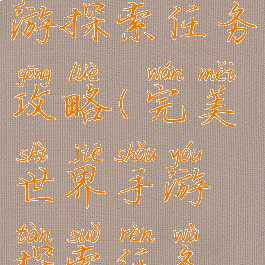 游探索任务
gōng lüè wán měi
攻略(完美
shì jiè shǒu yóu
世界手游
tàn suǒ rèn wù
探索任务